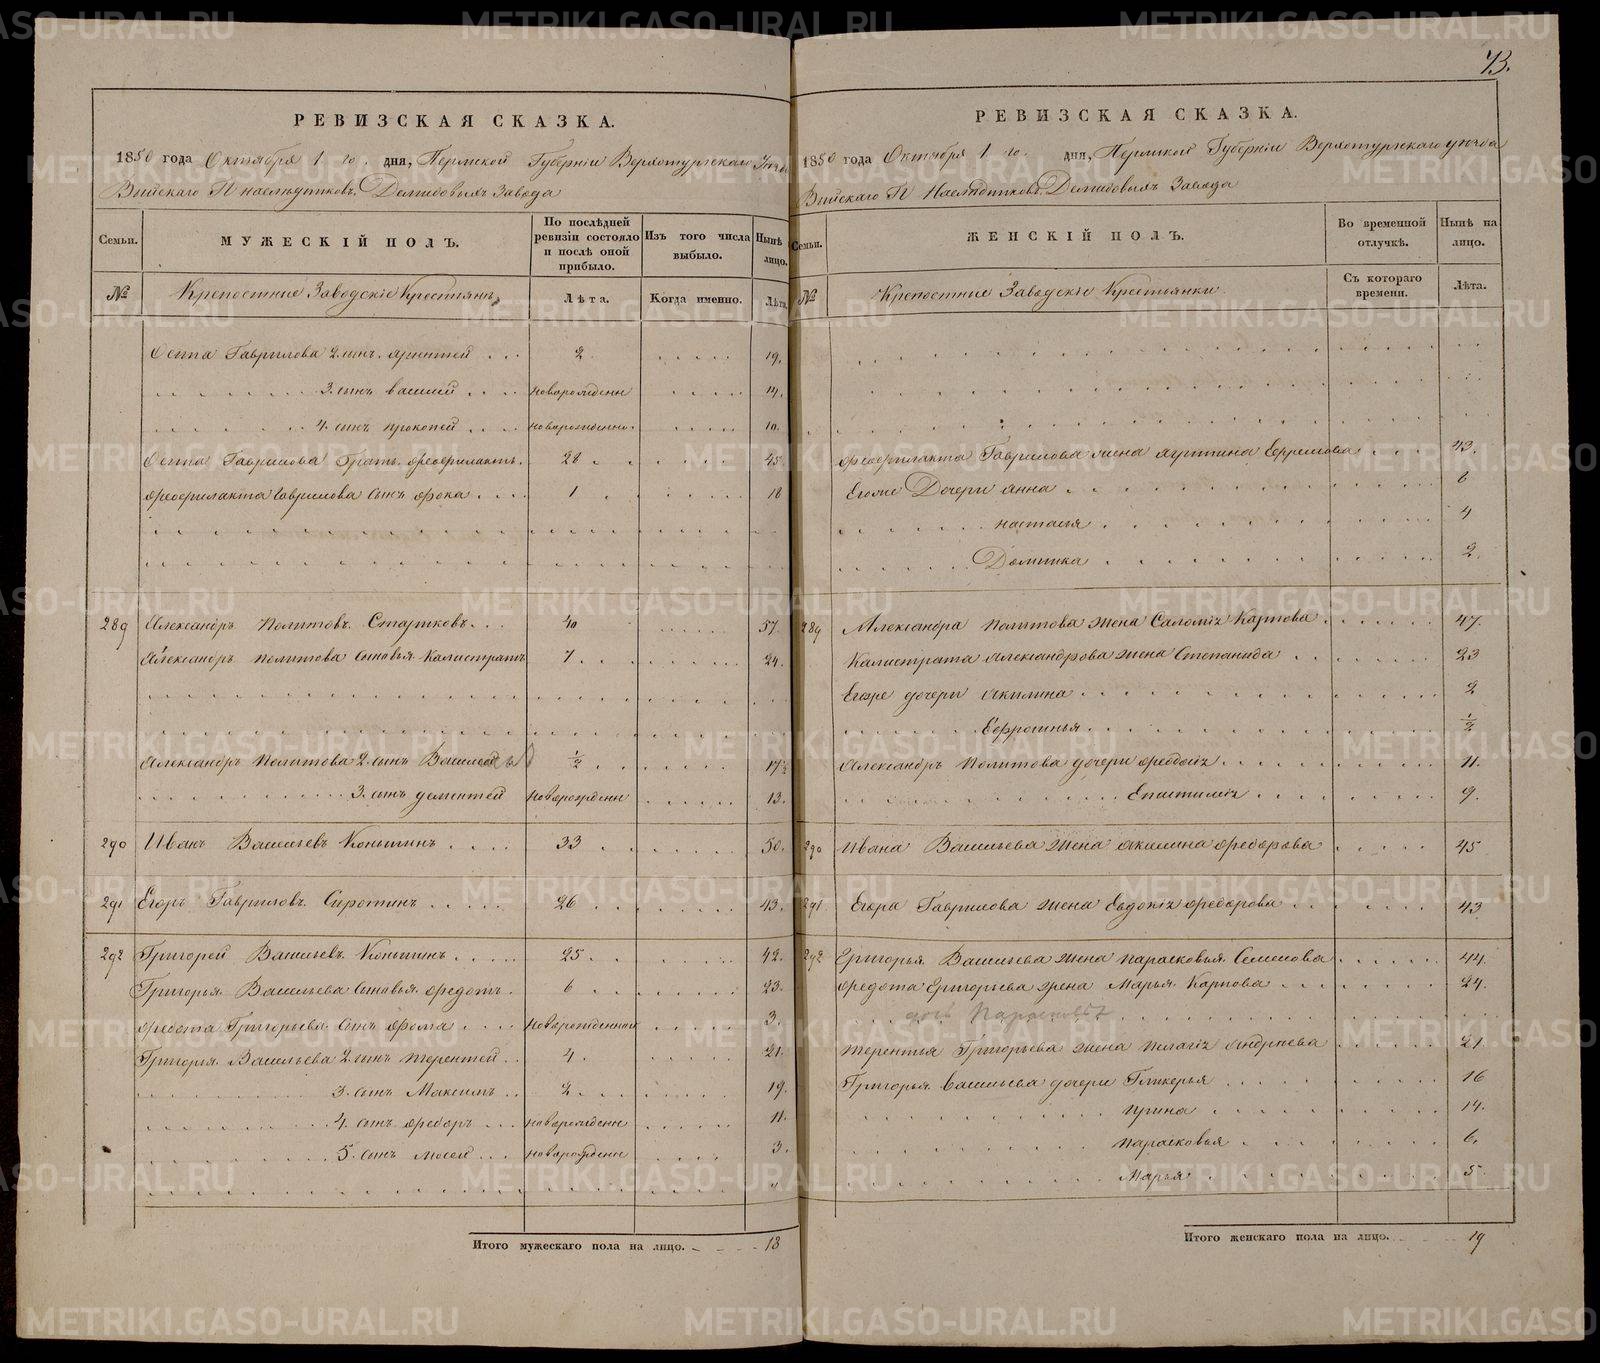 73.
РЕВИЗСКАЯ СКАЗКА.
1850 года Октября 1 го. дня, Пермской Губерніи Верхотурскаго Уезда
Выйскаго Гг наслѣдниковъ Демидовыхъ Завода
Семьи.
МУЖЕСКІЙ ПОЛЪ.
По послѣдней ревизіи состояло и послѣ оной прибыло.
Изъ того числа выбыло.
Нынѣ на лицо.
№ Крепостние Заводскіе Крестьяне Лѣта. Когда именно. Лѣта.
Осипа Гаврилова 2. сынъ 2 19.
3. сынъ василей новорожденн 14.
4. сынъ прокопей новорожденно. 10.
Осипа Гаврилова Братъ ѳеофилактъ. 28 45.
ѳеофилакта Гаврилова сынъ ѳока 1 18
289 Александръ Политовъ Старковъ. 40 57.
Александръ политова Сыновья Калистратъ 7 24.
Александръ Политова 2. сынъ Василей ½ 17½
3. сынъ дементей новорожденн 13.
290 Иванъ Васильевъ Коньшинъ 33 50.
291 Егоръ Гавриловъ Сиротинъ 26 43.
292 Григорей Васильевъ Коньшинъ 25 42.
Григорья Васильева Сыновья ѳедотъ. 6 23.
ѳедота Григорьева Сынъ ѳома новорожденной 3.
Григорья Васильева 2. сынъ терентей 4 21.
3. сынъ Максимъ 2 19.
4. сынъ ѳедоръ новорожденн 11.
5. сынъ мосей новорожденн 3.
Итого мужескаго пола на лицо. 18
РЕВИЗСКАЯ СКАЗКА.
1850 года Октября 1 го. дня, Пермской Губерніи Верхотурскаго уезда
Выйскаго Гг Наслѣдниковъ Демидовыхъ Завода
Семьи.
ЖЕНСКІЙ ПОЛЪ.
Во временной отлучкѣ.
Нынѣ на лицо.
№ Крепостние Заводскіе Крестьянки. Съ котораго времени. Лѣта.
ѳеофилакта Гаврилова жена Ефремова 43.
Егоже Дочери анна 6
настасья 4
Домника 2.
289 Александра политова жена Саломія Карпова 47.
Калистрата Александрова жена Степанида 23
Егоже дочери акилина 2
Ефросинья ½
Александръ Политова дочери 11.
9.
290 Ивана Васильева жена акилина ѳедорова 45
291 Егора Гаврилова жена Евдокія ѳедорова 43
292 Григорья Васильева жена парасковья Семенова 44.
ѳедота Григорьева жена Марья Карпова 24.
дочь Парасковья
терентья Григорьева жена пелагія Андреева 21
Григорья васильева дочери Гликерья 16
ирина 14.
парасковья 6.
Марья 5
Итого женскаго пола на лицо. 19
METRIKI.GASO-URAL.RU